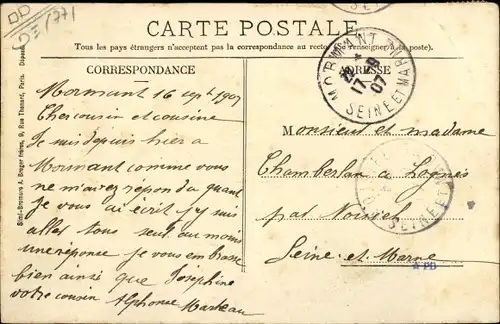 CARTE POSTALE
Tous les pays étrangers n'acceptent pas la correspondance au recto. (Se renseigner à la poste).
CORRESPONDANCE
ADRESSE
MORMANT
17-9
07
SEINE ET MARNE
Mormant 16 sept 1907
Cher cousin et cousine
Je suis depuis hier a
Mormant comme vous
ne m'avez repondu quant
je vous ai écrit j'y suis
allez tous seul au moins
une réponse je vous embrasse
bien ainsi que Joséphine
votre cousin Alphonse Marteau
Monsieur et madame
Chamberlan a Lognes
par Noisiel
Seine et Marne
SEINE ET
PD
Simi-Bromure A. Breger frères, 9, Rue Thénard, Paris.